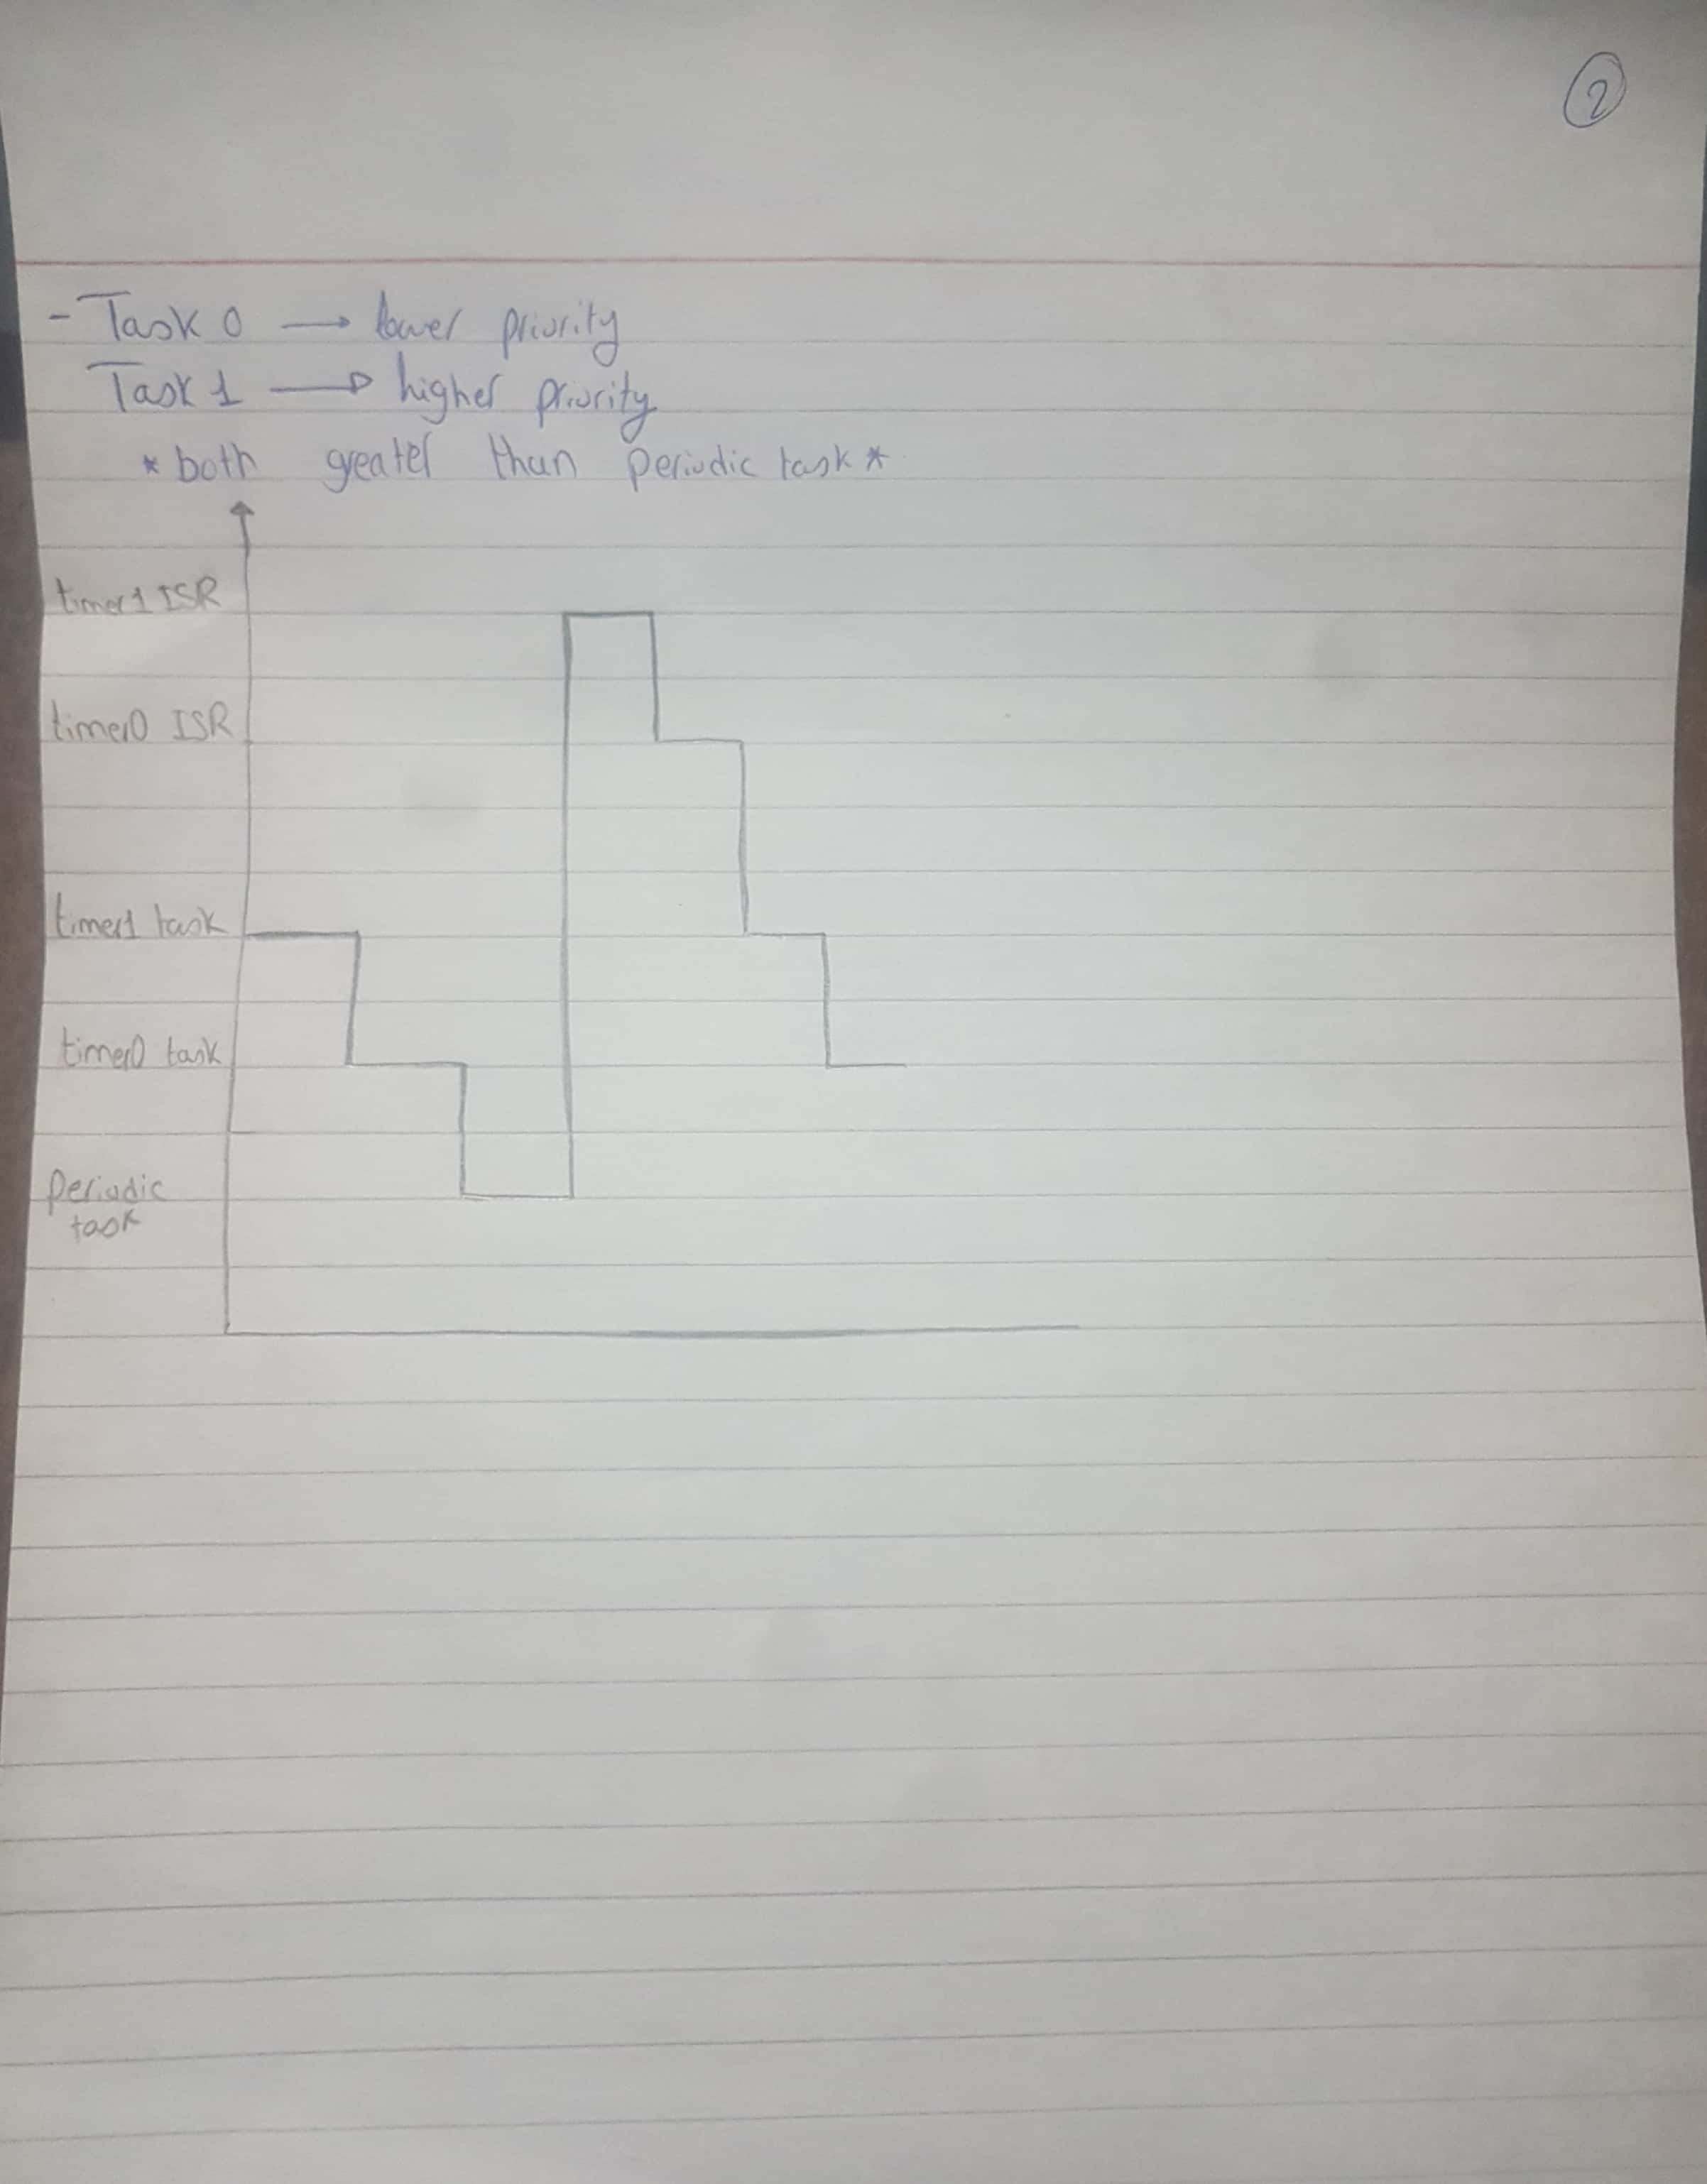 2
- Task 0 → lower priority
Task 1 → higher priority
* both greater than periodic task *
timer1 ISR
timer0 ISR
timer1 task
timer0 task
Periodic
task